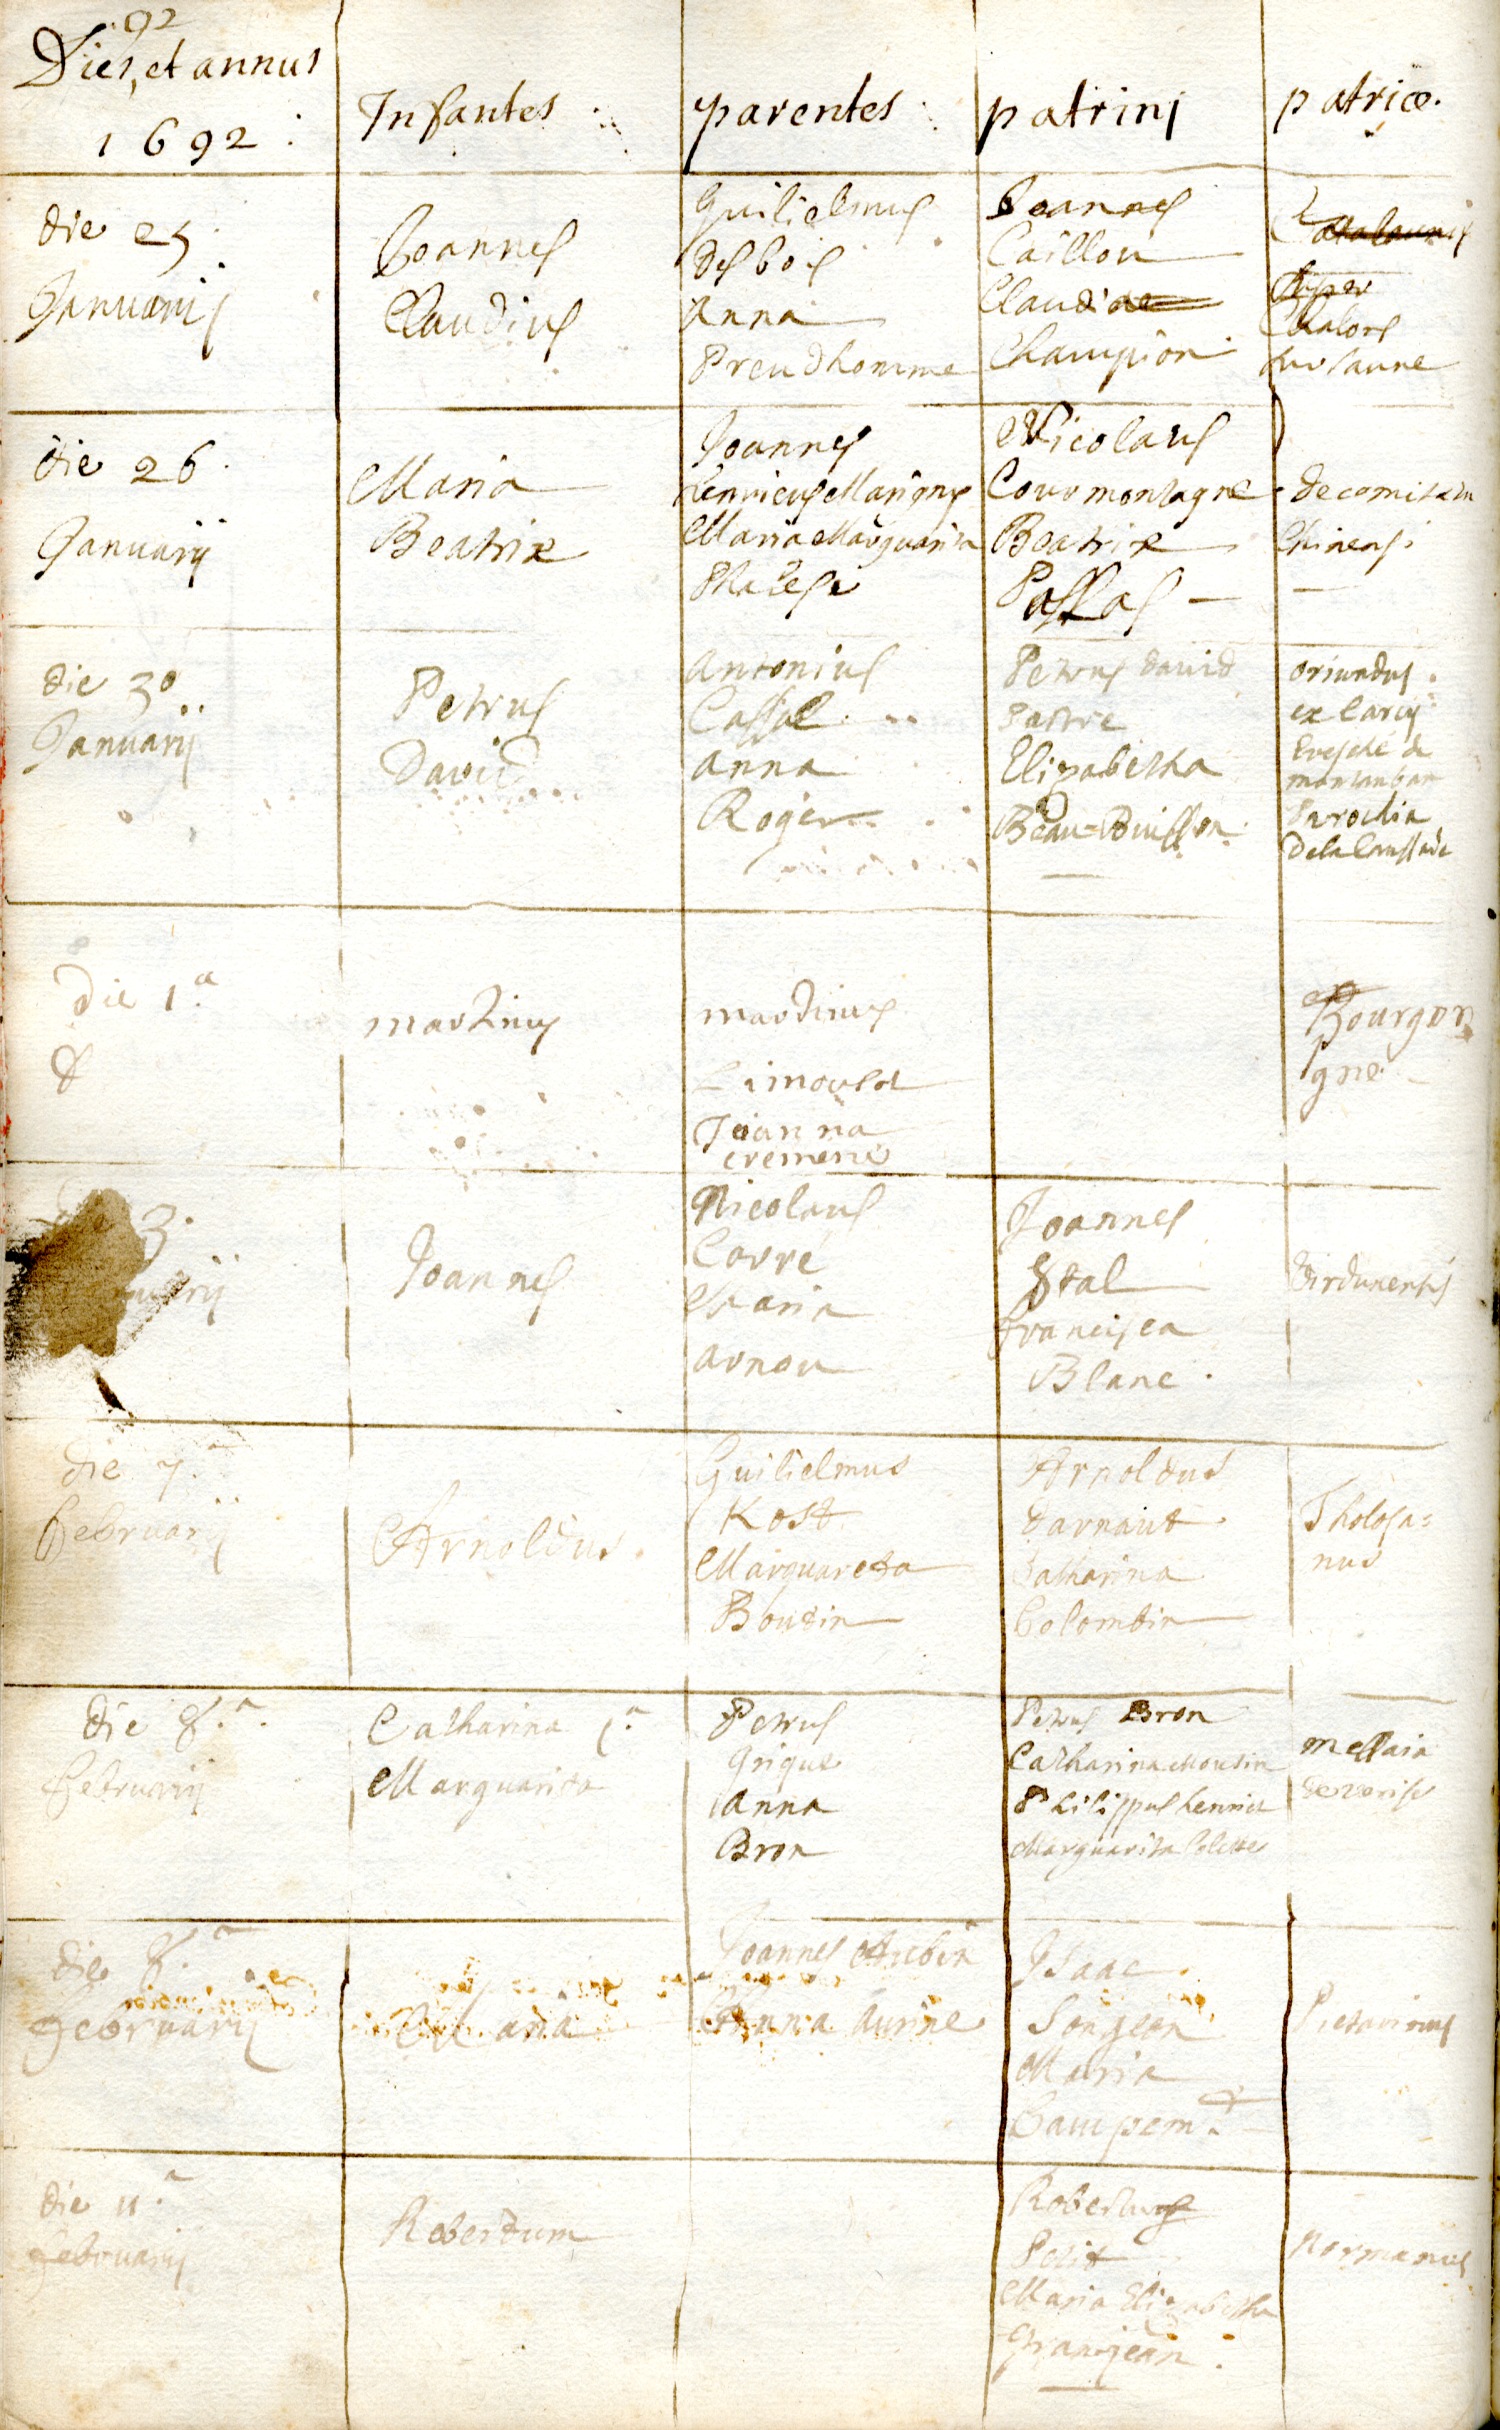 92
Dies, et annus
1692
Infantes
parentes
patrini
patriæ
die 25
Januarij
Joannes
Claudius
Guilielmus
desbois
Anna
Preudhomme
Joannes
Caillou
Claudi
Champion
Chalons
sur saune
die 26
Januarij
Maria
Beatrix
Joannes
Maria Marguarita
Nicolaus
Courmontagne
Beatrix
de comitatu
Chinensi
die 30
Januarij
Petrus
David
Antonius
Cassal
Anna
Roger
Petrus David
Elizabetha
Beau=Buisson
oriundus
Evesché de
montauban
Parochia
die 1.a
martinus
martinus
Limoulot
Joanna
Bourgon
gne
3.
Joannes
Nicolaus
Corré
Maria
arnou
Joannes
Stal
francisca
Blanc
Virdunensis
die 7.a
februarij
Arnoldus
Guilielmus
Kost
Marguareta
Boutin
Arnoldus
darnaut
Catharina
Colombin
Tholosa=
nus
die 8.a
februarij
Catharina
Marguarita
Petrus
Grique
Anna
Bron
Petrus Bron
Catharina Moutin
Philippus henriet
Marguarita Colette
die 8.a
Februarij
Maria
Joannes Aubin
Anna Aurine
Isaac
Songeon
Maria
Pictavinus
die 11.a
februarij
Robertum
Robertus
Petit
Maria Elizabetha
Granjean
Normanus